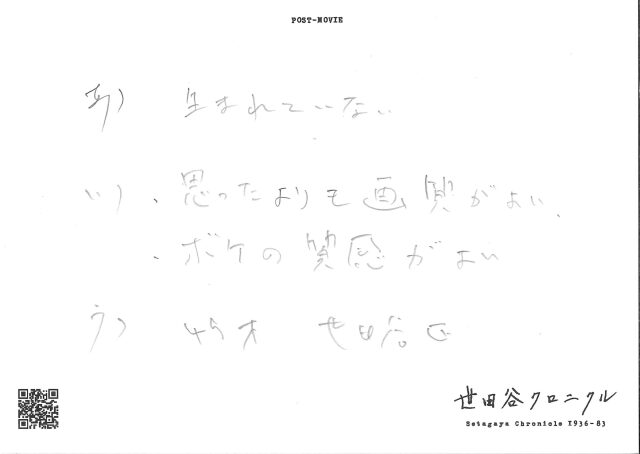 POST-MOVIE
あ) 生まれていない
い)、思ったよりも画質がよい、
、ボケの質感がよい
う) 世田谷区
世田谷クロニクル
Setagaya Chronicle 1936-83